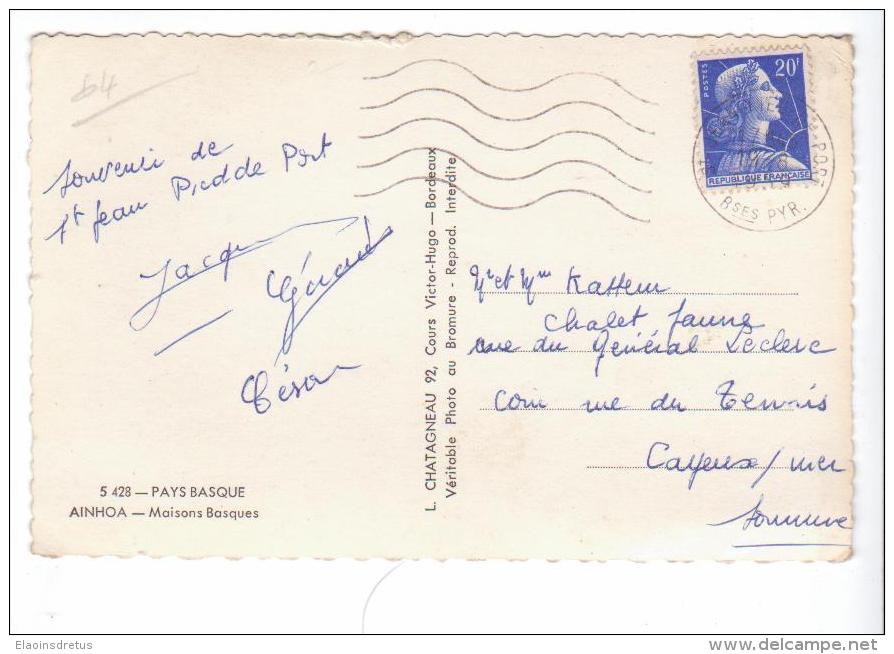 64
Souvenir de
St Jean Pied de Port
Jacqu
Gérard
César
5 428 — PAYS BASQUE
AINHOA — Maisons Basques
L. CHATAGNEAU 92, Cours Victor-Hugo — Bordeaux
Véritable Photo au Bromure - Reprod. Interdite.
POSTES
20F
REPUBLIQUE FRANÇAISE
PORT
BSES PYR.
Mr et Mme
Chalet Jaune
rue du Général Leclerc
coin rue du Tennis
Cayeux/mer
Somme
Elaoinsdretus
www.delcampe.net